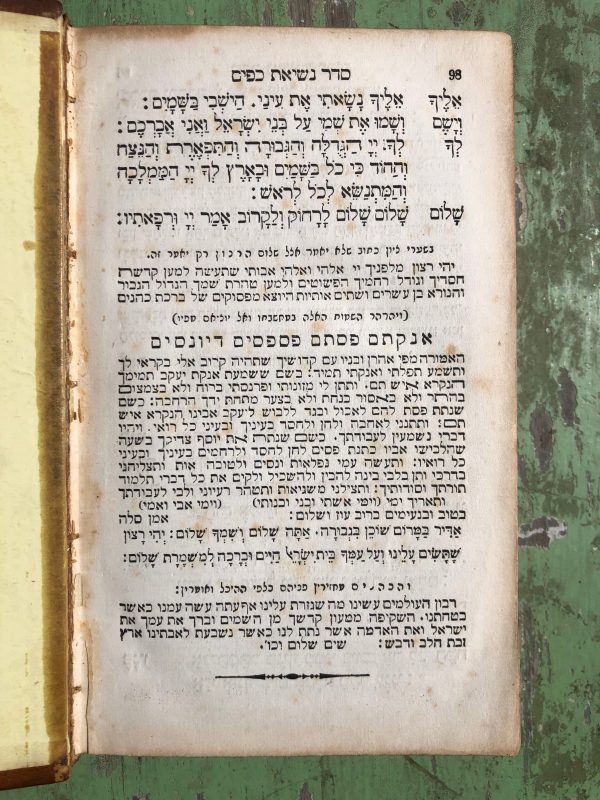 98
סדר נשיאת כפים
אֵלֶיךָ אֵלֶיךָ נָשָׂאתִי אֶת עֵינַי. הַיּשְׁבִי בַּשָּׁמָיִם:
וְיָשֵׂם וְשָׂמוּ אֶת שְׁמִי עַל בְּנֵי יִשְׂרָאֵל וַאֲנִי אֲבָרְכֵם:
לְךָ לְךָ יְיָ הַגְּדֻלָּה וְהַגְּבוּרָה וְהַתִּפְאֶרֶת וְהַנֵּצַח
וְהַהוֹד כִּי כֹל בַּשָּׁמַיִם וּבָאָרֶץ לְךָ יְיָ הַמַּמְלָכָה
וְהַמִּתְנַשֵּׂא לְכֹל לְרֹאשׁ:
שָׁלוֹם שָׁלוֹם שָׁלוֹם לָרָחוֹק וְלַקָּרוֹב אָמַר יְיָ וּרְפָאתִיו:
בשערי ציון כתוב שלא יאמר אצל שלום הרבון רק יאמר זה.
יהי רצון מלפניך יי אלהי ואלהי אבותי שתעשה למען קדושת
חסדיך וגודל רחמיך הפשוטים ולמען טהרת שמך הגדול הגבור
והנורא בן עשרים ושתים אותיות היוצא מפסוקים של ברכת כהנים
(ויהרהר השמות האלה במחשבתו ואל יוציאם מפיו)
אנקתם פסתם פספסים דיונסים
האמורה מפי אהרן ובניו עם קדושיך שתהיה קרוב אלי בקראי לך
ותשמע תפלתי ואנקתי תמיד: כשם ששמעת אנקת יעקב תמימך
הנקרא איש תם. ותתן לי מזונותי ופרנסתי ברוח ולא בצמצום
בהתר ולא באסור בנחת ולא בצער מתחת ידך הרחבה: כשם
שנתת פסת לחם לאכול ובגד ללבוש ליעקב אבינו הנקרא איש
תם: ותתנני לאהבה ולחן ולחסד בעיניך ובעיני כל רואי. ויהיו
דברי נשמעין לעבודתך. כשם שנתת את יוסף צדיקך בשעה
שהלבישו אביו כתנת פסים לחן לחסד ולרחמים בעיניך ובעיני
כל רואיו: ותעשה עמי נפלאות ונסים ולטובה אות ותצליחני
בדרכי ותן בלבי בינה להבין ולהשכיל ולקים את כל דברי תלמוד
תורתך וסודותיה: ותצילני משגיאות ותטהר רעיוני ולבי לעבודתך
ותאריך ימי (וימי אשתי ובני ובנותי) (וימי אבי ואמי)
בטוב ובנעימים ברוב עוז ושלום: אמן סלה
אַדִּיר בַּמָּרוֹם שׁוֹכֵן בִּגְבוּרָה. אַתָּה שָׁלוֹם וְשִׁמְךָ שָׁלוֹם: יְהִי רָצוֹן
שֶׁתָּשִׂים עָלֵינוּ וְעַל עַמְּךָ בֵּית יִשְׂרָאֵל חַיִּים וּבְרָכָה לְמִשְׁמֶרֶת שָׁלוֹם:
והכהנים מחזירין פניהם כלפי ההיכל ואומרין:
רבון העולמים עשינו מה שגזרת עלינו אף אתה עשה עמנו כאשר
בטחתנו. השקיפה ממעון קדשך מן השמים וברך את עמך את
ישראל ואת האדמה אשר נתת לנו כאשר נשבעת לאבתינו ארץ
זבת חלב ודבש: שים שלום וכו'.